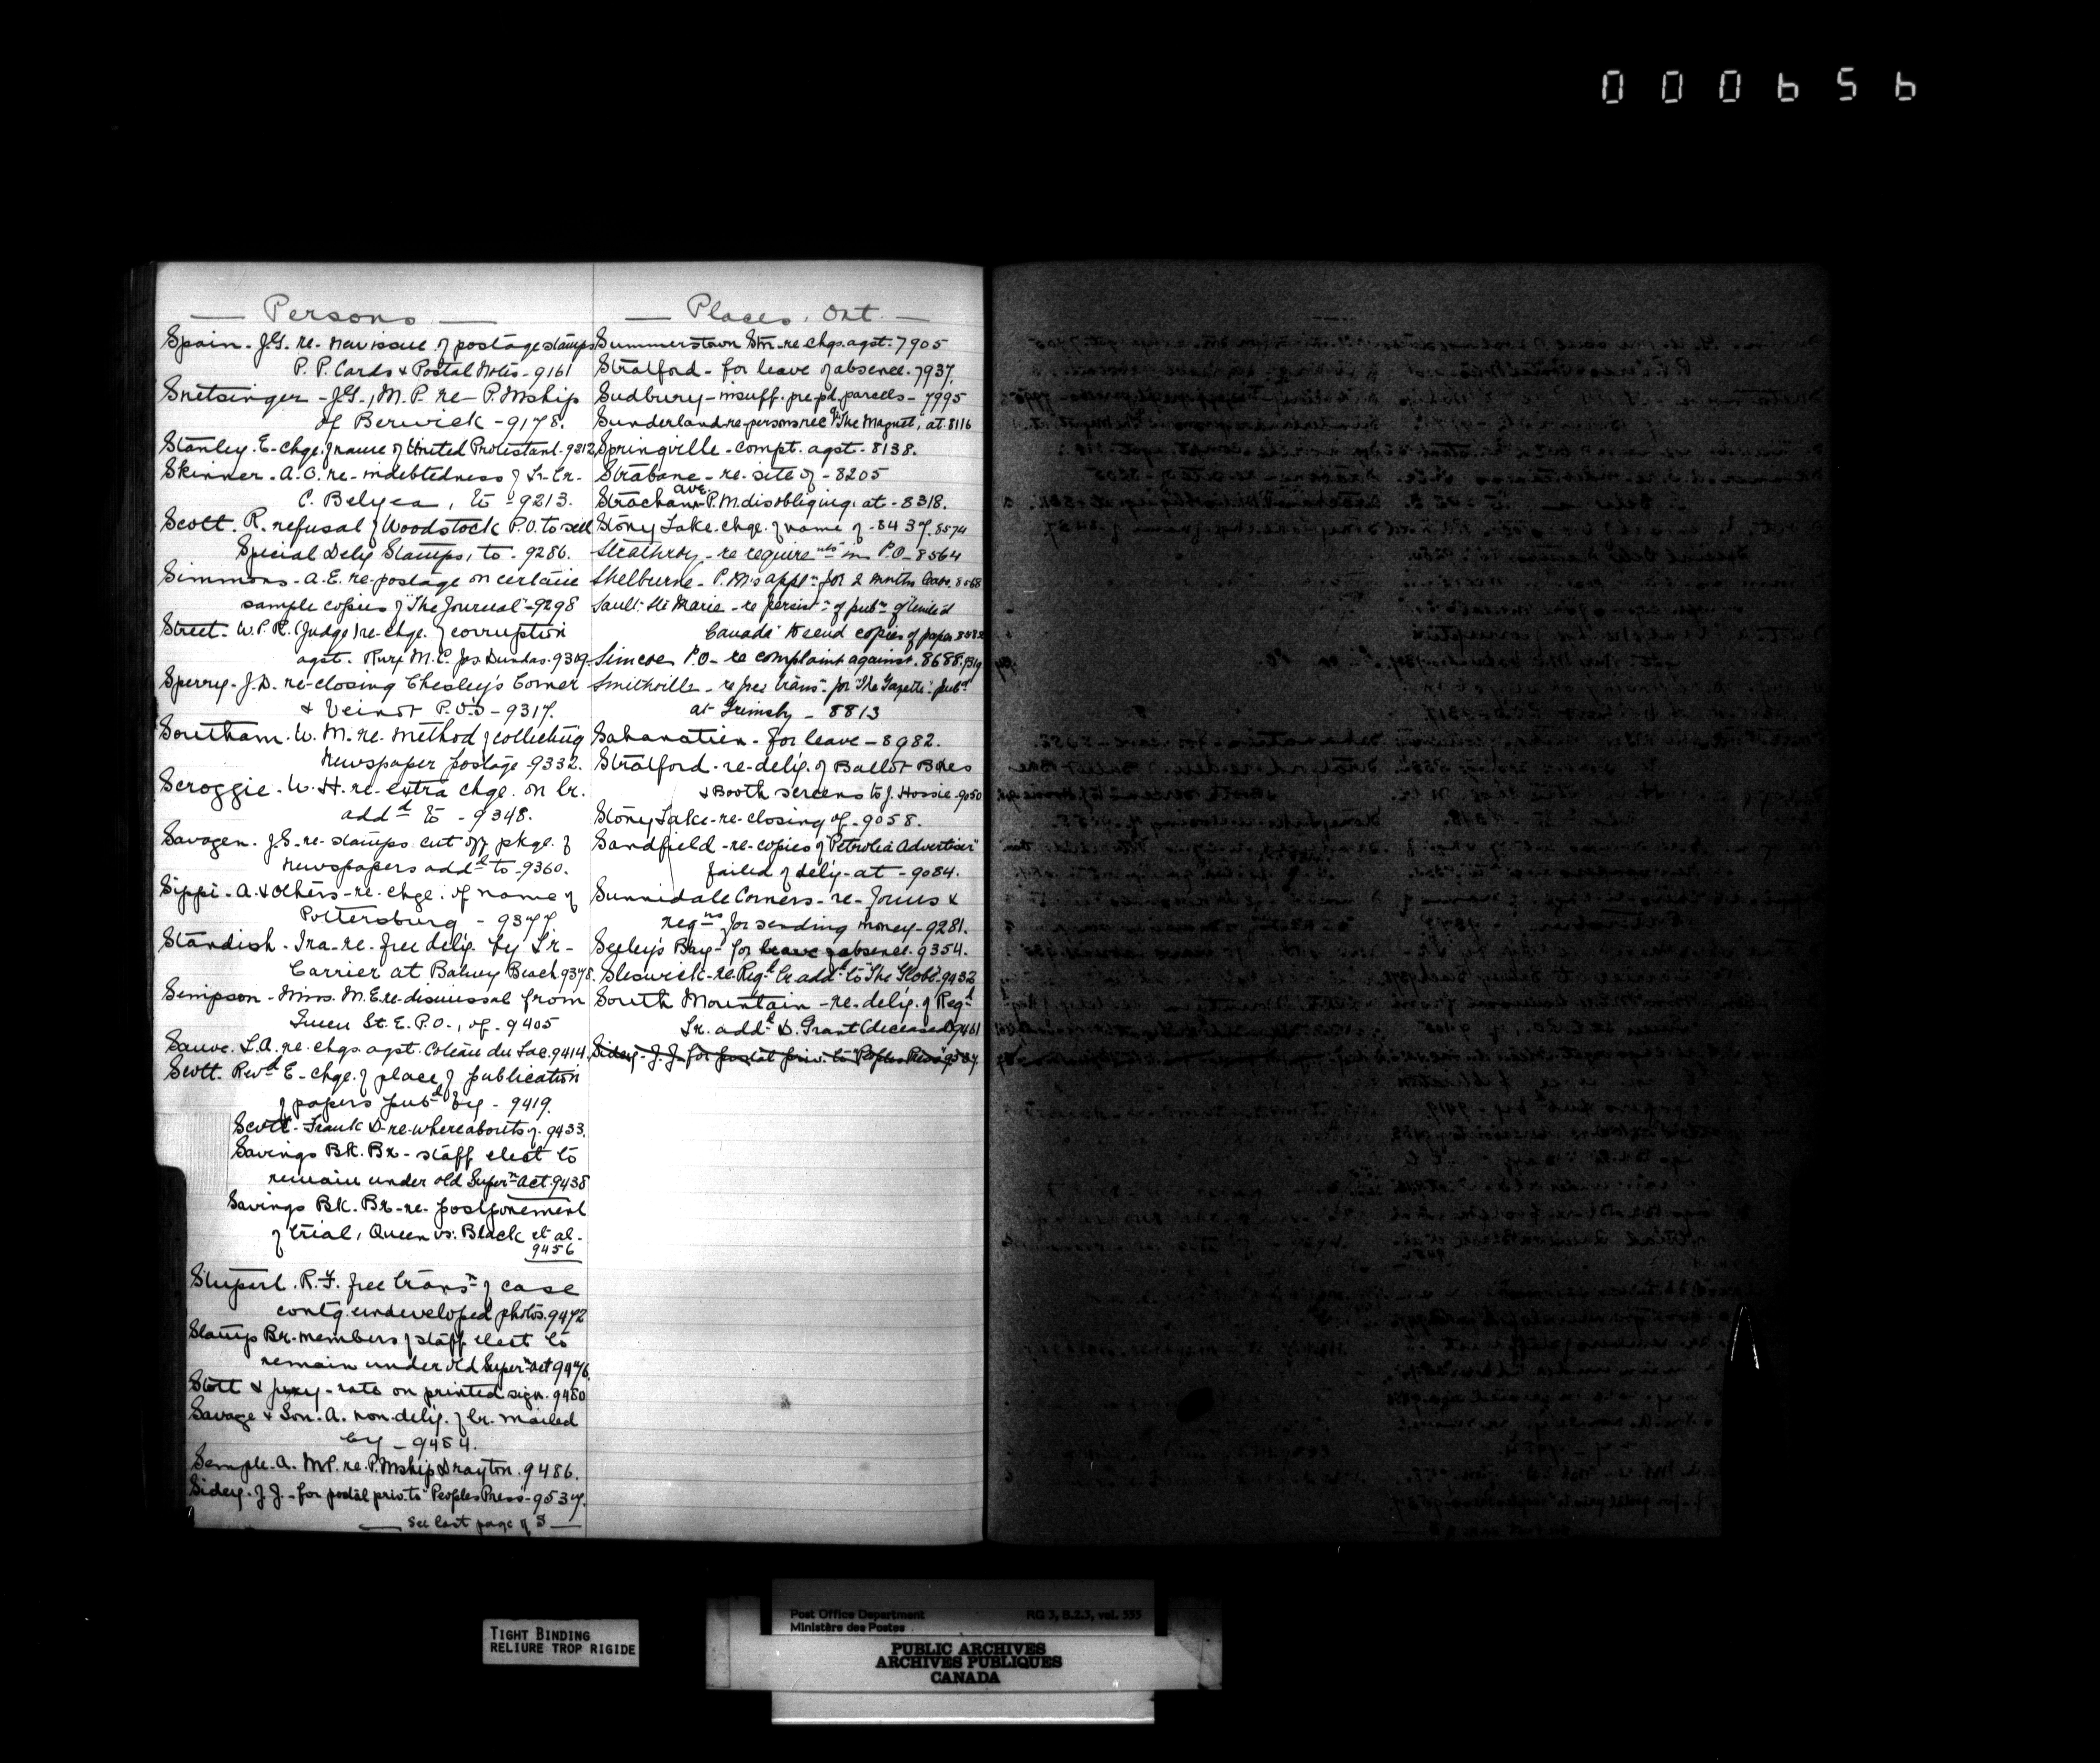 000656
— Persons —
Spain. J.G. re. new issue of postage stamps
P. P. Cards & Postal Notes - 9161
Snetsinger - J.G., M.P. re - P.Mship
of Berwick - 9178.
Stanley. E. chge. of name of United Protestant. 9212
Skinner. A.O. re. indebtedness of Lr. Cr.
C. Belyea, to - 9213.
Scott. R. refusal of Woodstock P.O. to sell
Special Dely Stamps, to - 9286.
Simmons. A.E. re. postage on certain
sample copies of "The Journal" - 9298
Street. W.P.R. (Judge) re - chge. of corruption
agst. Rury M.C. Jas. Dundas. 9309
Sperry. J.D. re - closing Chesley's Corner
& Veinot P.O's - 9317.
Southam. W. M. re. method of collecting
Newspaper postage - 9332.
Scroggie. W. H. re. extra chge. on lr.
add'd to - 9348.
Savagen. J.S. re - stamps cut off pkge. of
newspapers add'd to - 9360.
Sippi. A. & others - re. chge. of name of
Pottersburg - 9377
Standish. Ira - re. free dely. by Lr -
Carrier at Balmy Beach 9378.
Simpson - Mrs. M.E. re - dismissal from
Queen St. E. P.O., of - 9405
Sauve. L.A. re. chgs. agst. Coteau du Lac. 9414.
Scott. Rev'd E - chge. of place of publication
of papers pub'd by - 9419.
Scott - Frank D - re - whereabouts of. 9433.
Savings Bk. Br - staff elect to
remain under old Super'n Act 9438
Savings Bk. Br - re - postponement
of trial, Queen vs. Black et al -
9456
Shupert. R. F. free trans'n of case
contg. undeveloped photos. 9472
Stamp Br. members of staff elect to
remain under old Super'n Act 9476.
Stott & Jury - rate on printed sign. 9480
Savage & Son. A. non. dely. of lr. mailed
by - 9484.
Semple. A. M.P. re. P.Mship Drayton. 9486.
Sidey. J.J. - for postal priv. to "Peoples Press" - 9537.
— See last page of S —
— Places, Ont. —
Summerstown Stn. - re chgs. agst. 7905
Stratford - for leave of absence. 7937.
Sudbury - insuff. pre-pd. parcels - 7995
Sunderland - re - persons rec'g "The Magnet", at. 8116
Springville - compt. agst - 8138.
Strabane - re - site of - 8205
Strachan Ave. P.M. disobliging at - 8318.
Stony Lake. chge. of name of - 8437. 8574
Strathroy - re require'nts in P.O - 8564
Shelburne - P.M's appl'n for 2 months leave. 8568
Sault Ste Marie - re persist'ce of pub'r of "United
Canada" to send copies of paper 8582
Simcoe P.O - re complaint against. 8688.
Smithville - re free trans'n for "The Gazette" pub'd
at Grimsby - 8813
Sahanatien - for leave - 8982.
Stratford - re - dely. of Ballot Boxes
& Booth screens to J. Hossie - 9050
Stony Lake - re - closing of - 9058.
Sandfield - re - copies of "Petrolia Advertiser"
failed of dely - at - 9084.
Sunnidale Corners - re - forms &
reg'ns for sending money - 9281.
Seeley's Bay - for leave of absence. 9354.
Sleswick - re Reg'd lr add'd to "The Globe" 9432
South Mountain - re - dely. of Reg'd
Lr. add'd D. Grant (deceased) 9461
Sidey - J.J. for postal priv. to "Peoples Press" 9537.
TIGHT BINDING
RELIURE TROP RIGIDE
Post Office Department RG 3, B.2.3, vol. 555
Ministère des Postes
PUBLIC ARCHIVES
ARCHIVES PUBLIQUES
CANADA